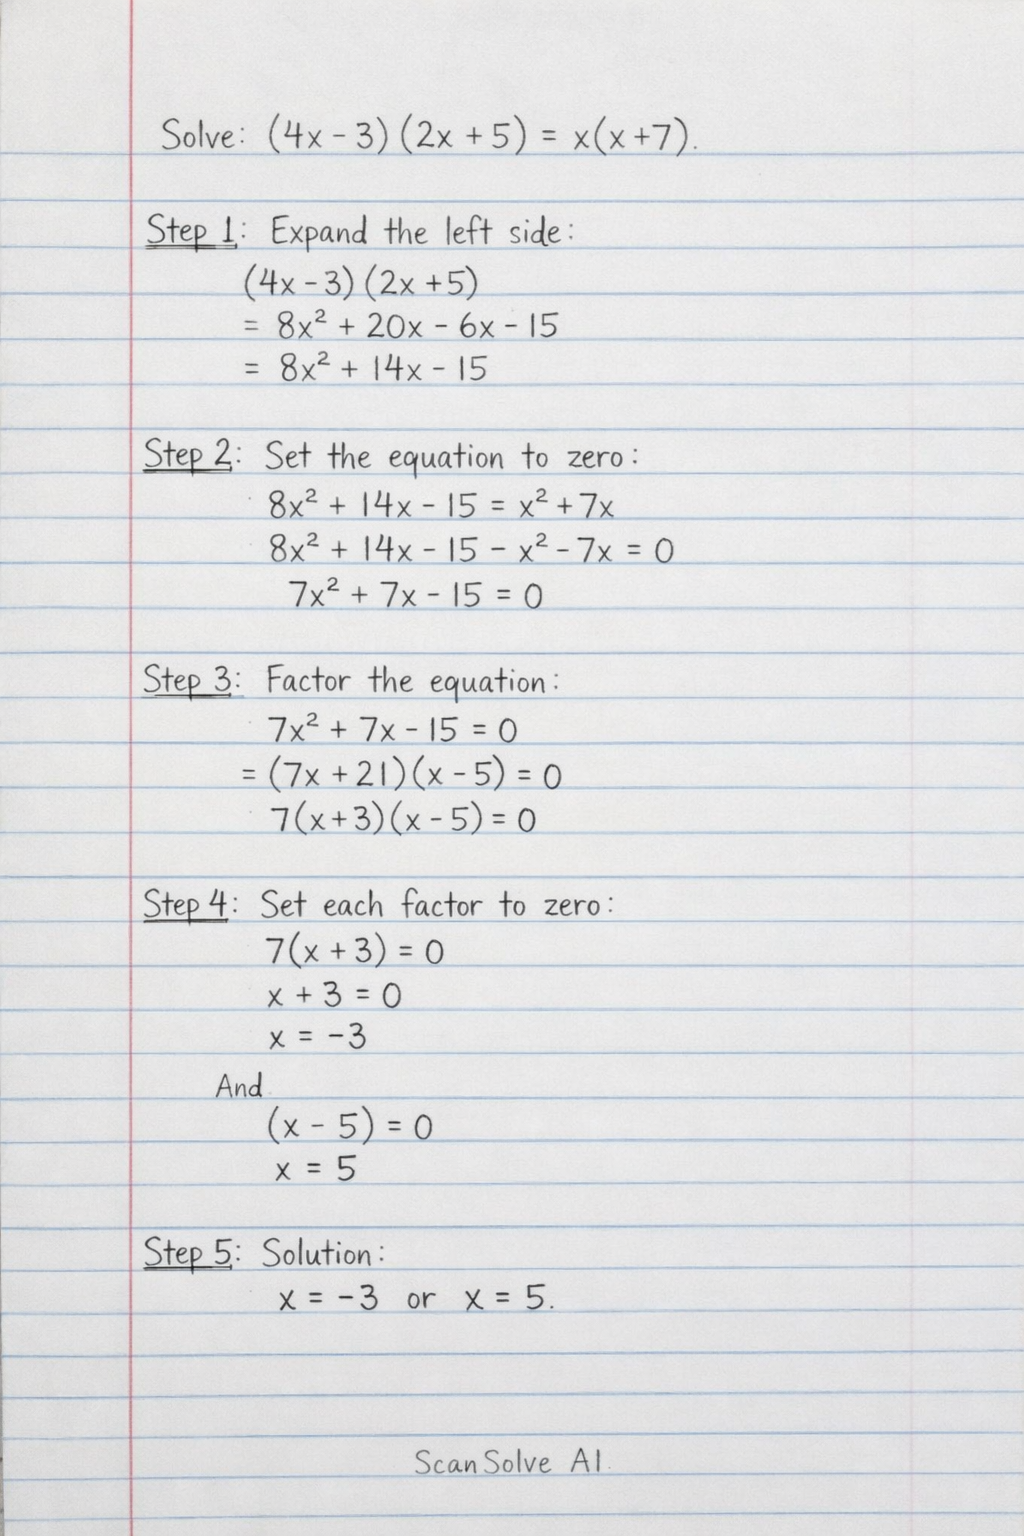 Solve: (4x - 3)(2x + 5) = x(x + 7).
Step 1: Expand the left side:
(4x - 3)(2x + 5)
= 8x² + 20x - 6x - 15
= 8x² + 14x - 15
Step 2: Set the equation to zero:
8x² + 14x - 15 = x² + 7x
8x² + 14x - 15 - x² - 7x = 0
7x² + 7x - 15 = 0
Step 3: Factor the equation:
7x² + 7x - 15 = 0
= (7x + 21)(x - 5) = 0
7(x + 3)(x - 5) = 0
Step 4: Set each factor to zero:
7(x + 3) = 0
x + 3 = 0
x = -3
And
(x - 5) = 0
x = 5
Step 5: Solution:
x = -3 or x = 5.
ScanSolve AI